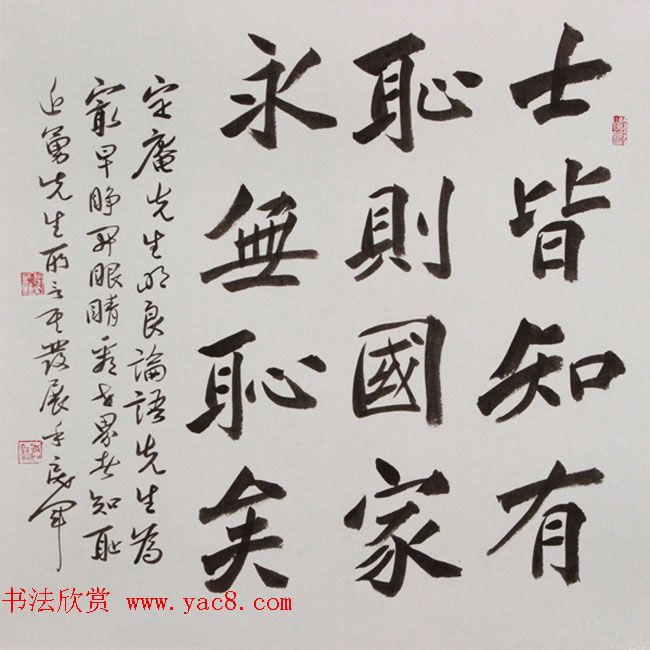 士皆知有
恥則國家
永無恥矣
定庵先生明良論語先生為
最早睜開眼睛看世界者知恥
近勇先生所言發展
书法欣赏 www.yac8.com